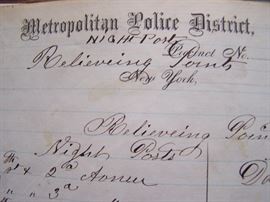 Metropolitan Police District,
NIGHT Posts
Precinct No.
Relieveing Points
New York,
Relieveing Poin
Night Posts
st & 2d Avenue
" " 3d "